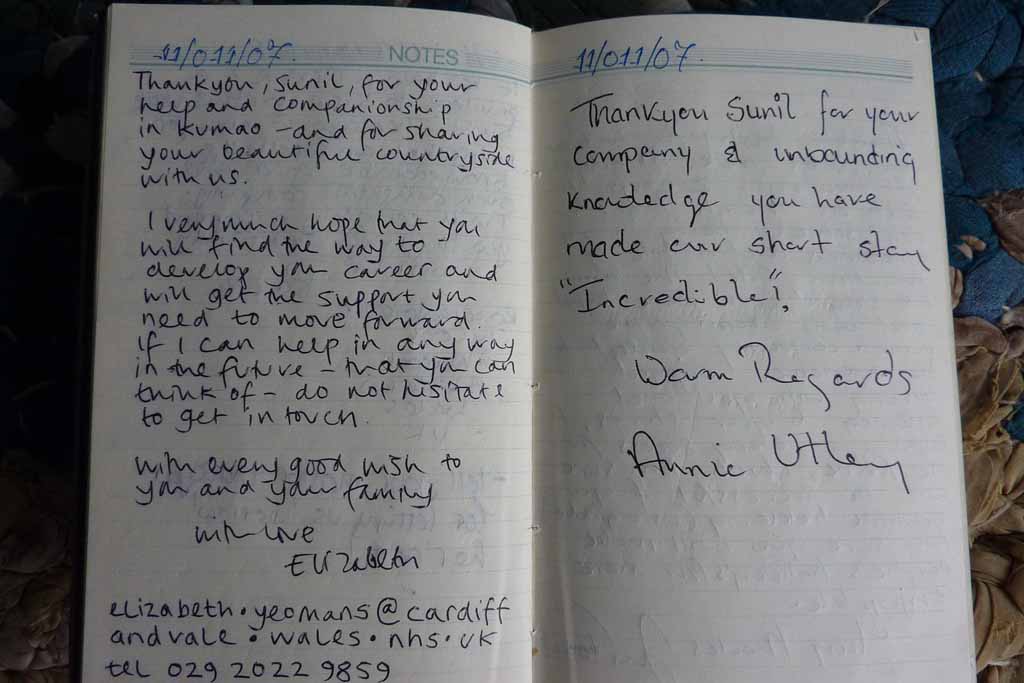 11/011/07.
NOTES
Thankyou, Sunil, for your
help and companionship
in Kumao - and for sharing
your beautiful countryside
with us.
I very much hope that you
will find the way to
develop your career and
will get the support you
need to move forward.
If I can help in any way
in the future - that you can
think of - do not hesitate
to get in touch.
With every good wish to
you and your family
with love
Elizabeth
elizabeth.yeomans@cardiff
andvale.wales.nhs.uk
tel 029 2022 9859
11/011/07.
Thankyou Sunil for your
company & unbounding
knowledge you have
made our short stay
"Incredible!",
Warm Regards
Annie Utley